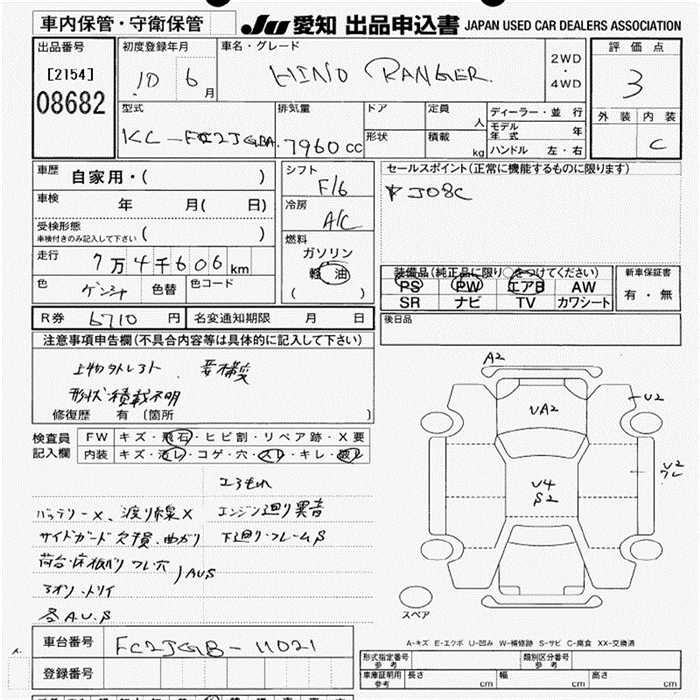 車内保管・守衛保管
JU 愛知 出品申込書 JAPAN USED CAR DEALERS ASSOCIATION
出品番号
[2154]
08682
初度登録年月
10 6月
車名・グレード
HINO RANGER
2WD
・
4WD
評価点
3
外装 内装
C
型式
KC-FC2JGBA
排気量
7960 CC
ドア
形状
定員
人
積載
kg
ディーラー・並行
モデル年式 年
ハンドル 左・右
車歴 自家用・( )
車検 年 月( 日)
受検形態
車検付きのみ記入して下さい ( )
走行 7万4千606km
色 ゲンシャ 色替 色コード
シフト
F/6
冷房
A/C
燃料
ガソリン
軽油
( )
セールスポイント(正常に機能するものに限ります)
J08C
装備品(純正品に限り○をつけてください)
PS PW エアB AW
SR ナビ TV カワシート
新車保証書
有・無
後日品
R券 6710円 名変通知期限 月 日
注意事項申告欄(不具合内容等は具体的に記入して下さい)
形状・積載不明
修復歴 有〔箇所 〕
検査員
記入欄
FW キズ・飛石・ヒビ割・リペア跡・X要
内装 キズ・汚レ・コゲ・穴・スレ・キレ・破レ
バッテリーX、渡り線X エンジン廻り異音
サイドガード欠損、曲がり 下廻り・フレームS
A2
UA2
U2
U4
S2
U2
スペア
A-キズ E-エクボ U-凹み W-補修跡 S-サビ C-腐食 XX-交換済
車台番号 FC2JGB-11021
登録番号
形式指定番号
参考
類別区分番号
参考
車庫証明用
参考
長さ cm 幅 cm 高さ cm